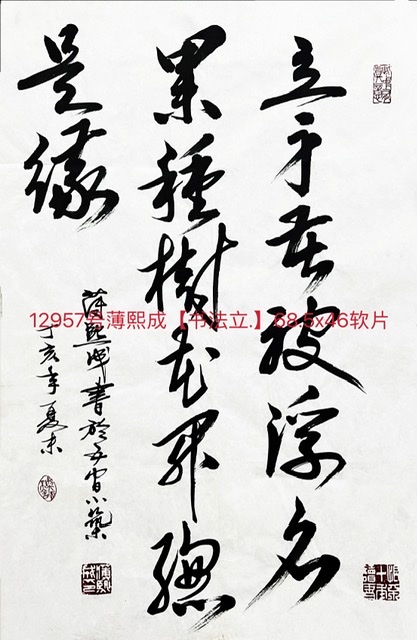 立身苦被浮名
累種樹花開總
是緣
丁亥年夏末
薄熙成書於小築
12957号薄熙成【书法立.】68.5x46软片